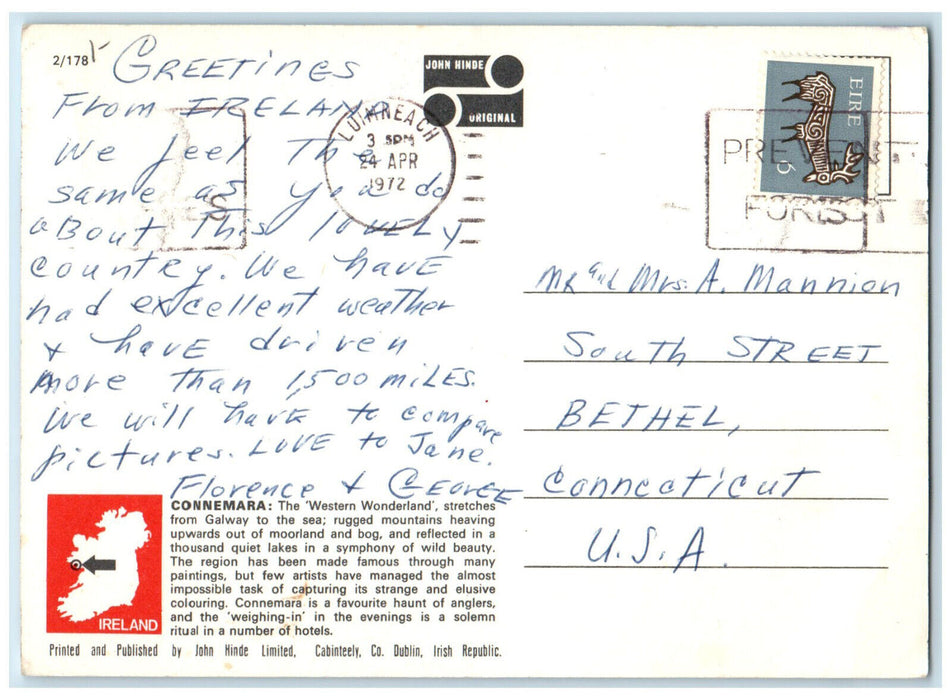 2/178
GREETinGS
From IRELAND
We feel The
same as You do
aBout This lovELY
country. We havE
had excellent weather
+ havE driven
more than 1,500 miLES.
We will havE to compare
pictures. LOVE to Jane.
Florence + GEORGE
JOHN HINDE
ORIGINAL
LUIMNEACH
3 30PM
24 APR
1972
EIRE
6
PREVENT
FOREST
MR and Mrs. A. Mannion
South STREET
BETHEL,
Connecticut
U.S.A.
CONNEMARA: The 'Western Wonderland', stretches
from Galway to the sea; rugged mountains heaving
upwards out of moorland and bog, and reflected in a
thousand quiet lakes in a symphony of wild beauty.
The region has been made famous through many
paintings, but few artists have managed the almost
impossible task of capturing its strange and elusive
colouring. Connemara is a favourite haunt of anglers,
and the 'weighing-in' in the evenings is a solemn
ritual in a number of hotels.
IRELAND
Printed and Published by John Hinde Limited, Cabinteely, Co. Dublin, Irish Republic.